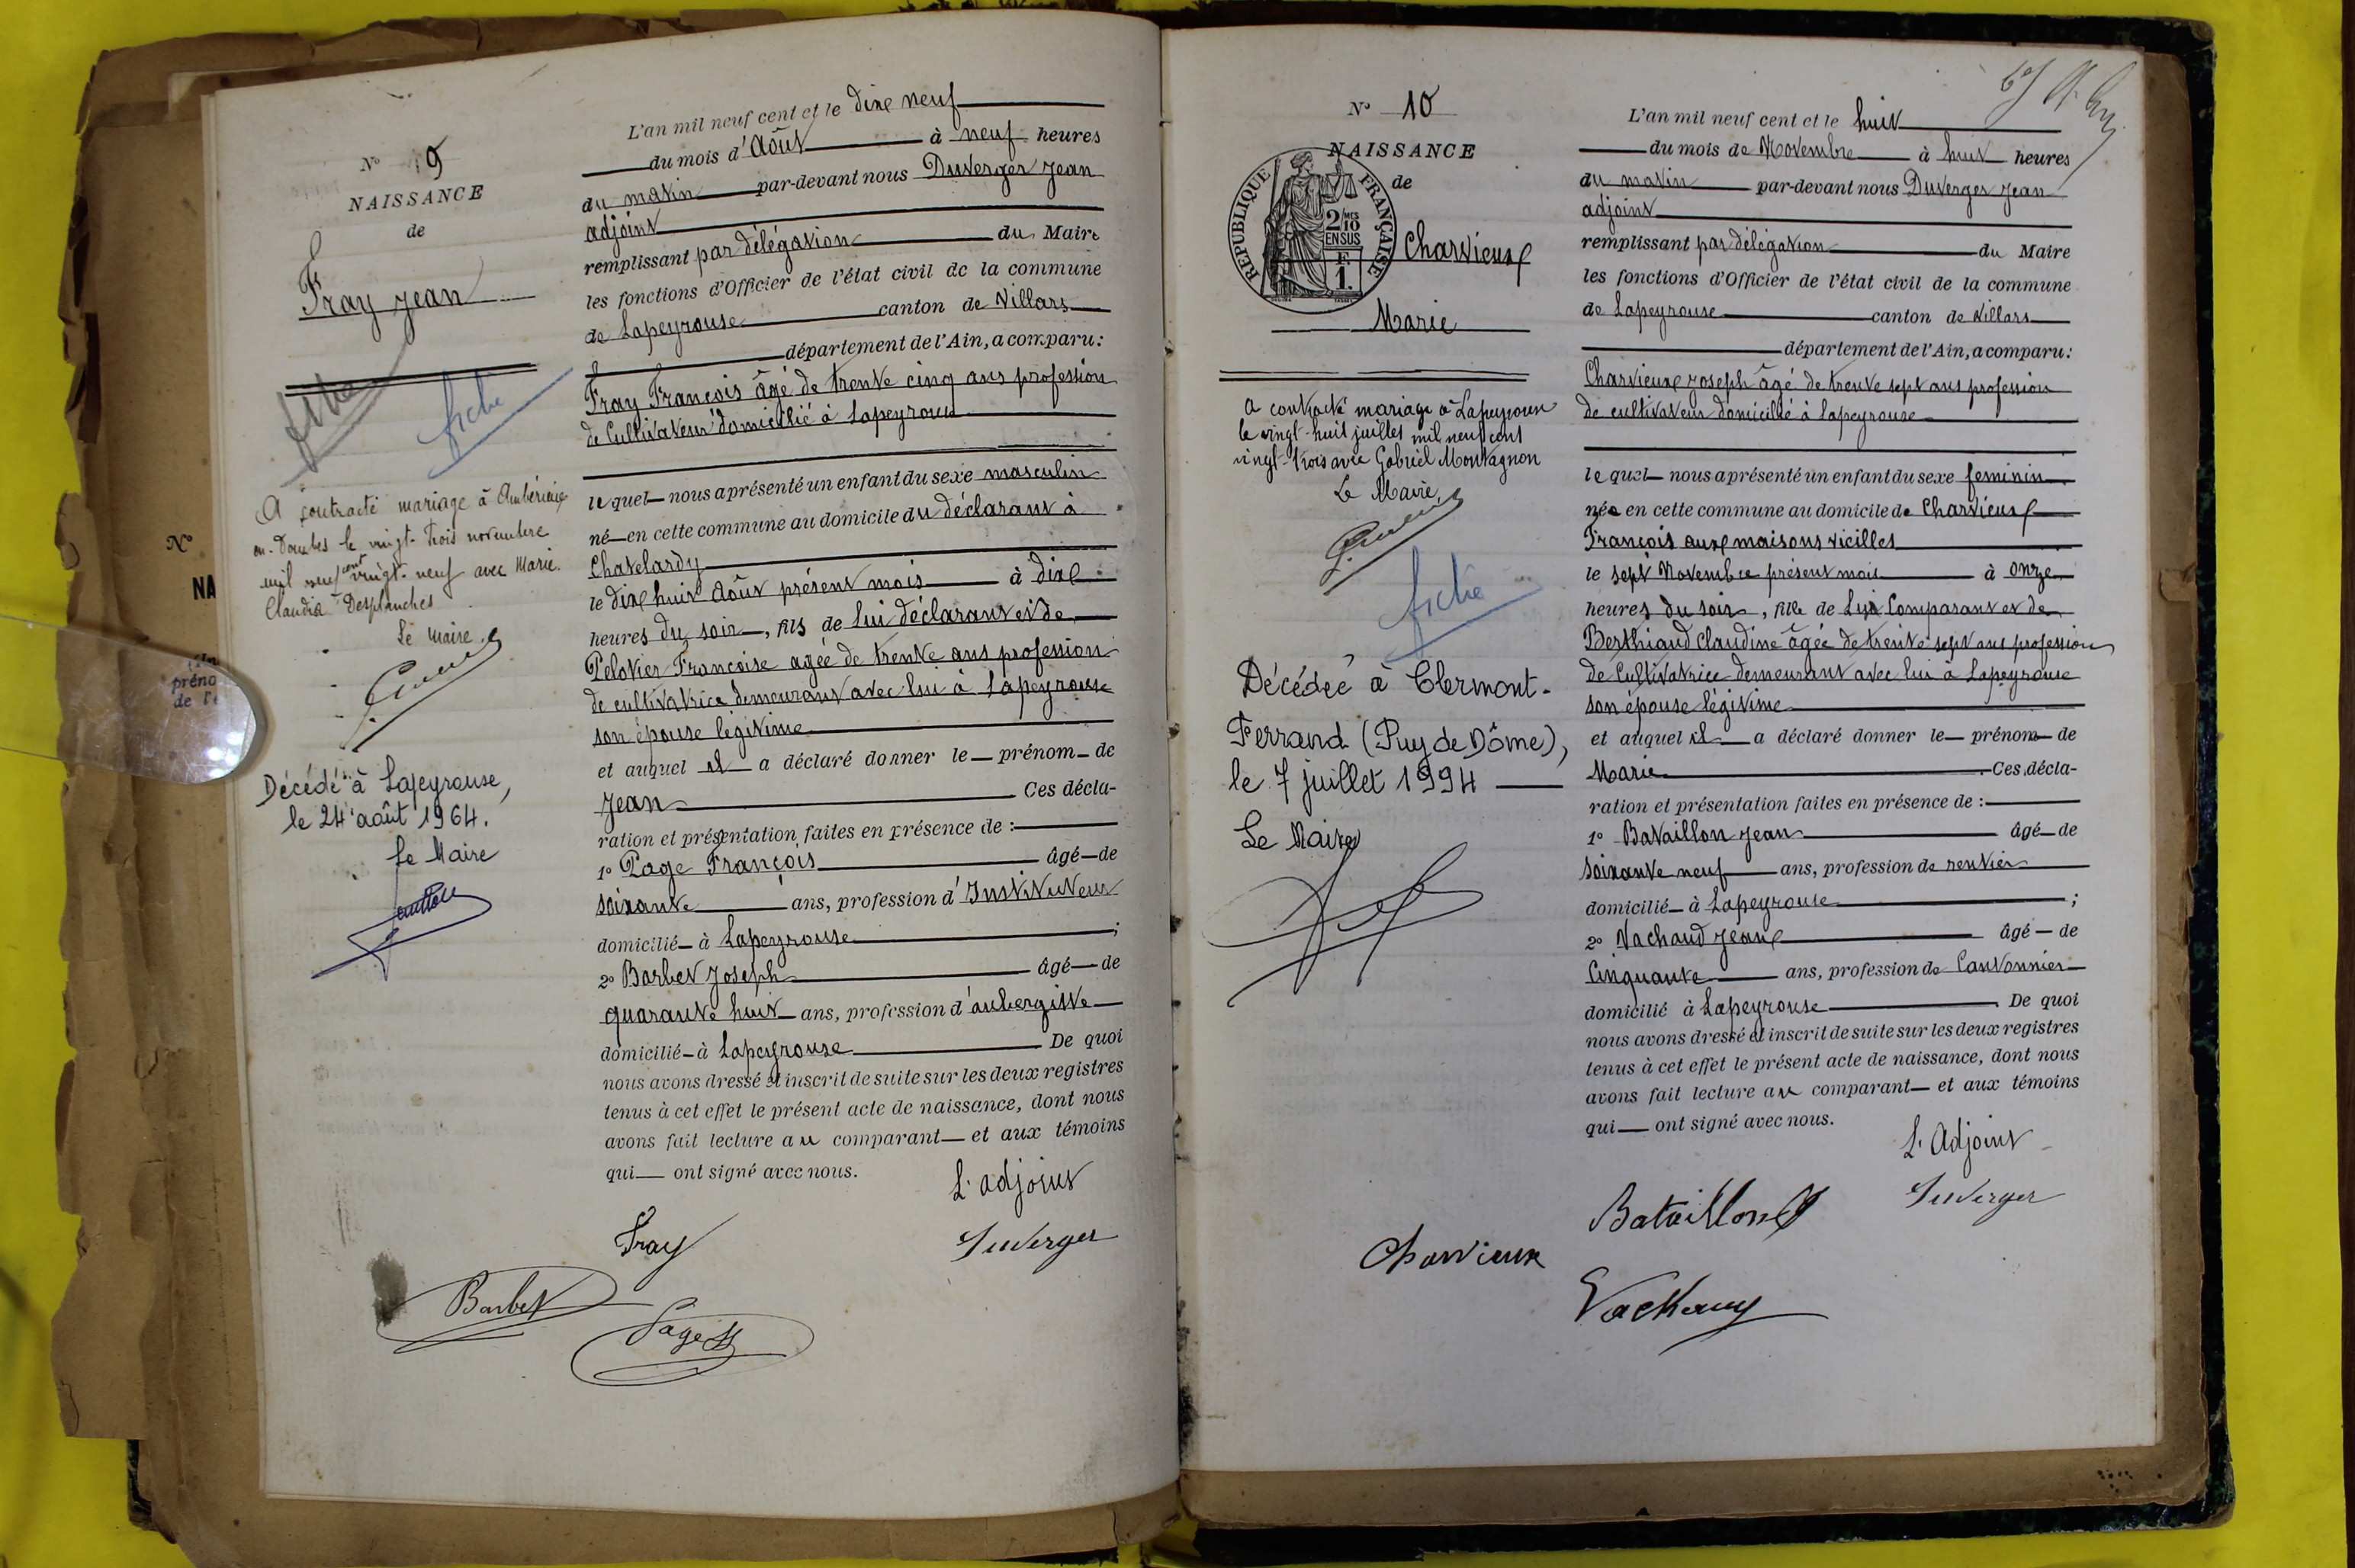 N° 9
NAISSANCE
de
Fray Jean
fiche
fiche
A contracté mariage à Ambérieux
en-Dombes le vingt-trois novembre
mil neuf cent vingt-neuf avec Marie
Claudia Desplanches
Le Maire
Décédé à Lapeyrouse,
le 24 août 1964.
Le Maire
N°
NA
préno
de l'e
L'an mil neuf cent et le dixe neuf
du mois d'Août à neuf heures
du matin par-devant nous Duverger Jean
adjoint
remplissant par délégation du Maire
les fonctions d'Officier de l'état civil de la commune
de Lapeyrouse canton de Villars
département de l'Ain, a comparu :
Fray François âgé de trente cinq ans profession
de Cultivateur domicilié à Lapeyrouse
lequel nous a présenté un enfant du sexe masculin
né en cette commune au domicile du déclarant à
Chatelardy
le dixe huit Août présent mois à dixe
heures du soir, fils de lui déclarant et de
Pelotier Françoise agée de trente ans profession
de cultivatrice demeurant avec lui à Lapeyrouse
son épouse légitime
et auquel il a déclaré donner le prénom de
Jean Ces décla-
ration et présentation faites en présence de :
1° Page François âgé de
soixante ans, profession d'Instituteur
domicilié à Lapeyrouse ;
2° Barbet Joseph âgé de
quarante huit ans, profession d'aubergiste
domicilié à Lapeyrouse De quoi
nous avons dressé et inscrit de suite sur les deux registres
tenus à cet effet le présent acte de naissance, dont nous
avons fait lecture au comparant et aux témoins
qui ont signé avec nous.
L'adjoint
Fray
Duverger
Barbet
Page
N° 10
NAISSANCE
de
RÉPUBLIQUE FRANÇAISE
2/10 MES
EN SUS
F.
1.
Charvieuxe
Marie
A contracté mariage à Lapeyrouse
le vingt-huit juillet mil neuf cent
vingt-trois avec Gabriel Montagnon
Le Maire
fiche
Décédée à Clermont-
Ferrand (Puy de Dôme),
le 7 juillet 1994
Le Maire
L'an mil neuf cent et le huit
du mois de Novembre à huit heures
du matin par-devant nous Duverger Jean
adjoint
remplissant par délégation du Maire
les fonctions d'Officier de l'état civil de la commune
de Lapeyrouse canton de Villars
département de l'Ain, a comparu :
Charvieuxe Joseph âgé de trente sept ans profession
de cultivateur domicilié à Lapeyrouse
lequel nous a présenté un enfant du sexe feminin
née en cette commune au domicile de Charvieuxe
François auxe maisons vieilles
le sept Novembre présent mois à onze
heures du soir, fille de Lui Comparant et de
Berthiaud Claudine âgée de trente sept ans profession
de Cultivatrice demeurant avec lui à Lapeyrouse
son épouse légitime
et auquel il a déclaré donner le prénom de
Marie Ces décla-
ration et présentation faites en présence de :
1° Bataillon Jean âgé de
soixante neuf ans, profession de rentier
domicilié à Lapeyrouse ;
2° Vachaud Jean âgé de
Cinquante ans, profession de Cantonnier
domicilié à Lapeyrouse De quoi
nous avons dressé et inscrit de suite sur les deux registres
tenus à cet effet le présent acte de naissance, dont nous
avons fait lecture au comparant et aux témoins
qui ont signé avec nous.
L'Adjoint
Bataillon
Duverger
Charvieux
Vachaud